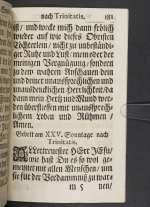 nach Trinitatis. 181
ist / und wecke mich dann frölich
wieder auf wie dieses Obristen
Töchterlein / nicht zu
ger Ruhe und Lust / meines oder der
meinigen Vergnügung / sondern
zu dem wahren Anschauen dein
und deiner unaussprechlichen und
unausendlichen Herrlichkeit / da
dann mein Hertz und Mund wer-
den überfliessen mit unaussprech-
lichem Loben und Rühmen /
Amen.
Gebett am XXV. Sonntage nach
Trinitatis.
ALlertreuester HErr JEsu /
wie hast Du es so wol ge-
meinet mit allen Menschen / um
sie für der Verdammnüß zu war-
m 5 nen /